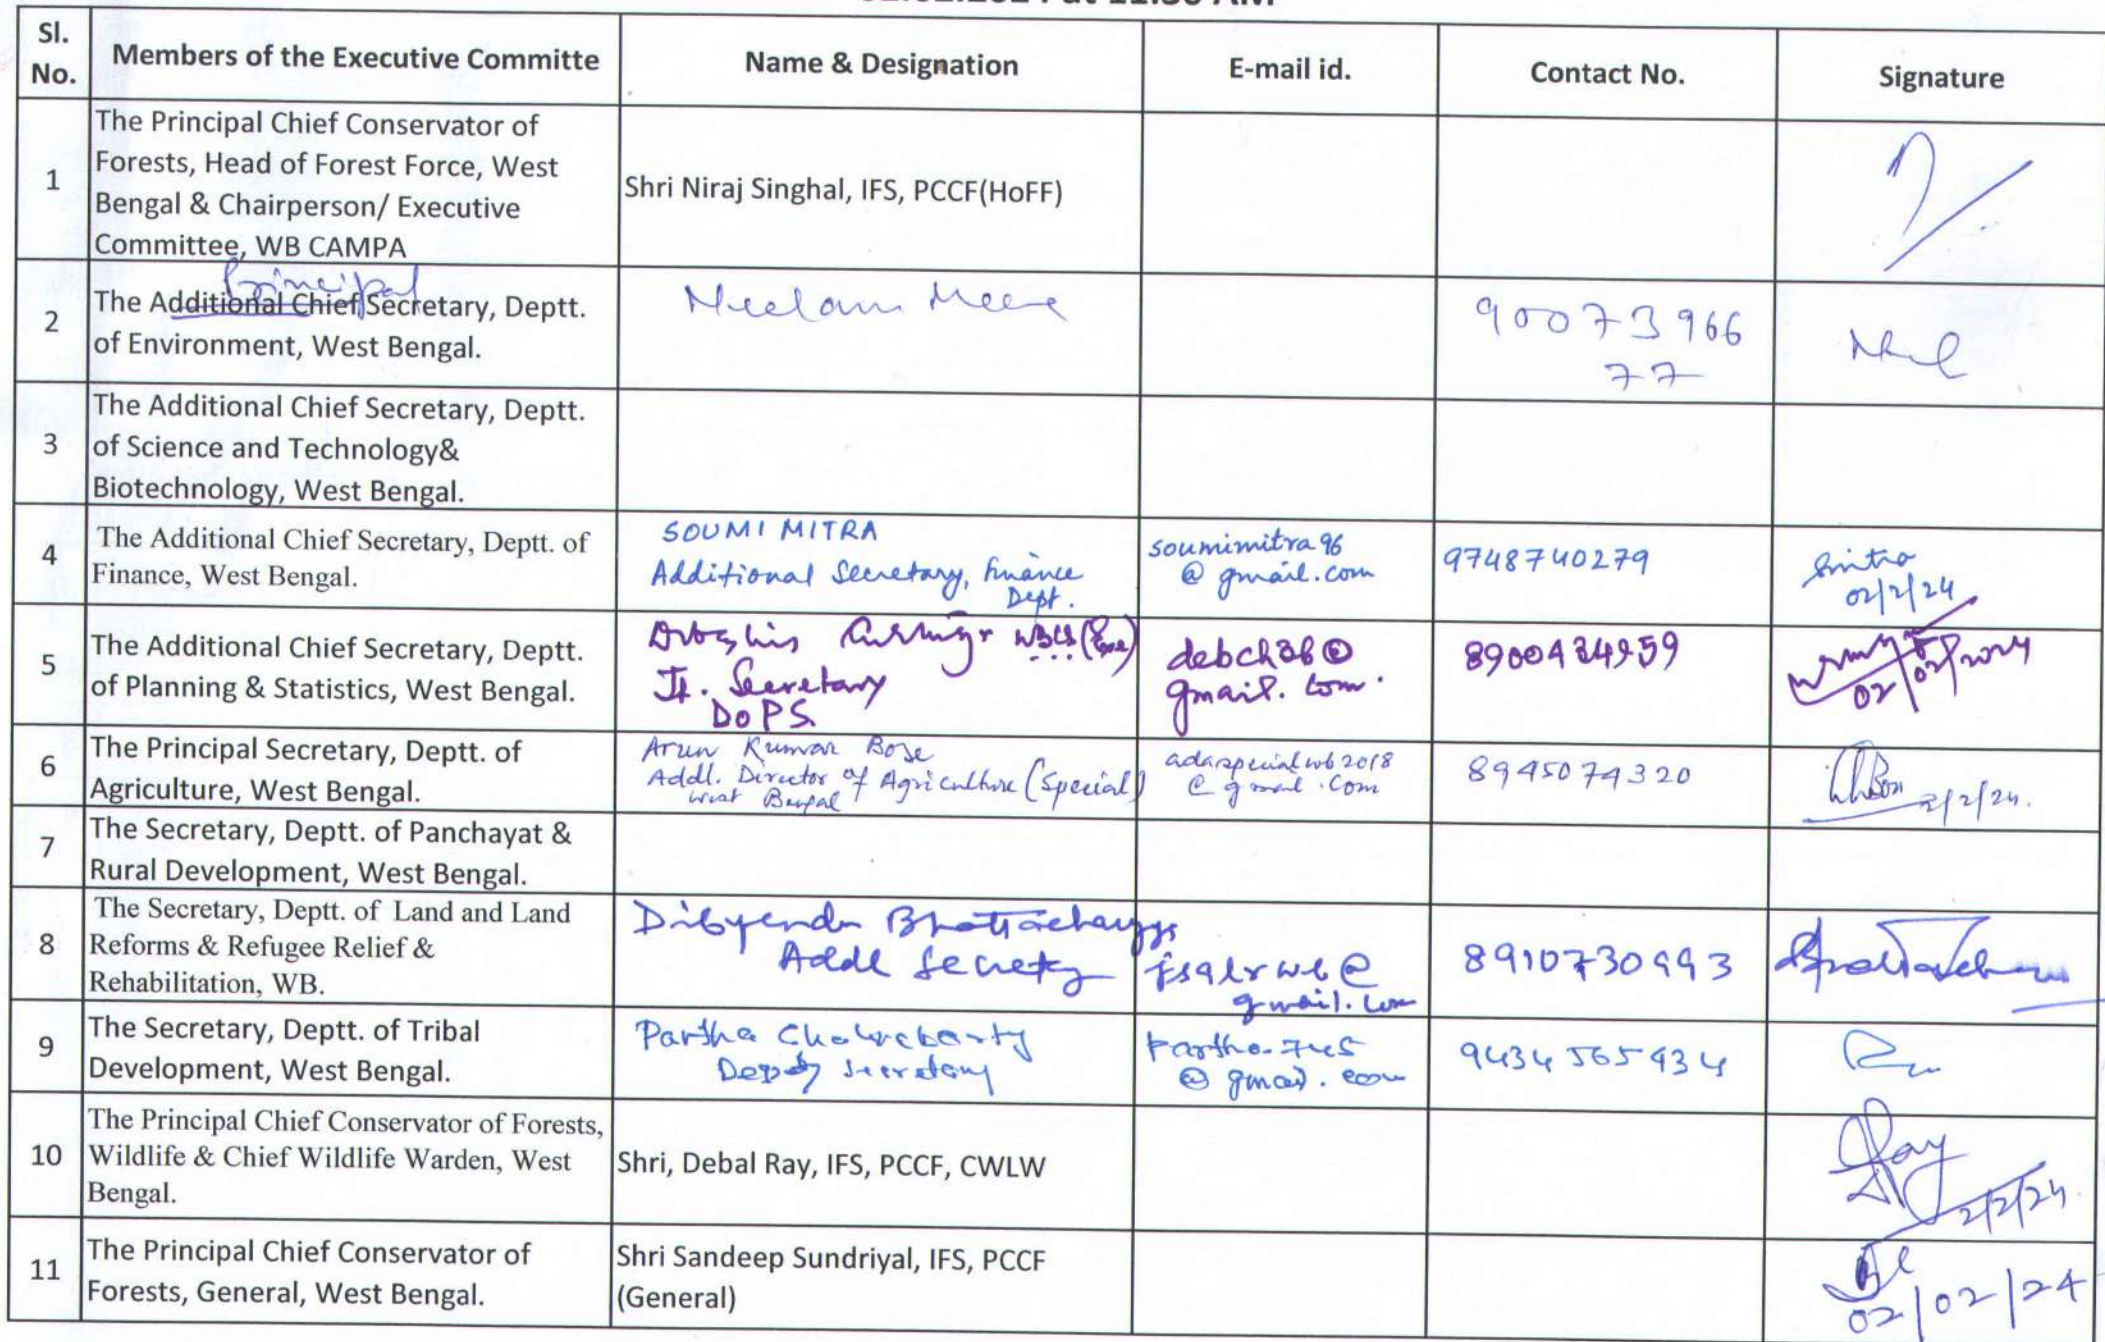 at 11:30 AM
Sl. No.
Members of the Executive Committe
Name & Designation
E-mail id.
Contact No.
Signature
1
The Principal Chief Conservator of
Forests, Head of Forest Force, West
Bengal & Chairperson/ Executive
Committee, WB CAMPA
Shri Niraj Singhal, IFS, PCCF(HoFF)
2
Principal
The Additional Chief Secretary, Deptt.
of Environment, West Bengal.
Neelam Meena
90073966
77
3
The Additional Chief Secretary, Deptt.
of Science and Technology&
Biotechnology, West Bengal.
4
The Additional Chief Secretary, Deptt. of
Finance, West Bengal.
SOUMI MITRA
Additional Secretary, Finance
Dept.
soumimitra96
@gmail.com
9748740279
Smitra
02/2/24
5
The Additional Chief Secretary, Deptt.
of Planning & Statistics, West Bengal.
Jt. Secretary
DoPS
gmail.com.
02/02/2024
6
The Principal Secretary, Deptt. of
Agriculture, West Bengal.
Arun Kumar Bose
Addl. Director of Agriculture (Special)
West Bengal
adaspecialwb2018
@gmail.com
8945074320
2/2/24.
7
The Secretary, Deptt. of Panchayat &
Rural Development, West Bengal.
8
The Secretary, Deptt. of Land and Land
Reforms & Refugee Relief &
Rehabilitation, WB.
Dibyendu Bhattacharyya
Addl Secretary
gmail.com
8910730993
9
The Secretary, Deptt. of Tribal
Development, West Bengal.
Partha Chakraborty
Deputy Secretary
@gmail.com
9434565934
10
The Principal Chief Conservator of Forests,
Wildlife & Chief Wildlife Warden, West
Bengal.
Shri, Debal Ray, IFS, PCCF, CWLW
DRay
2/2/24
11
The Principal Chief Conservator of
Forests, General, West Bengal.
Shri Sandeep Sundriyal, IFS, PCCF
(General)
02/02/24